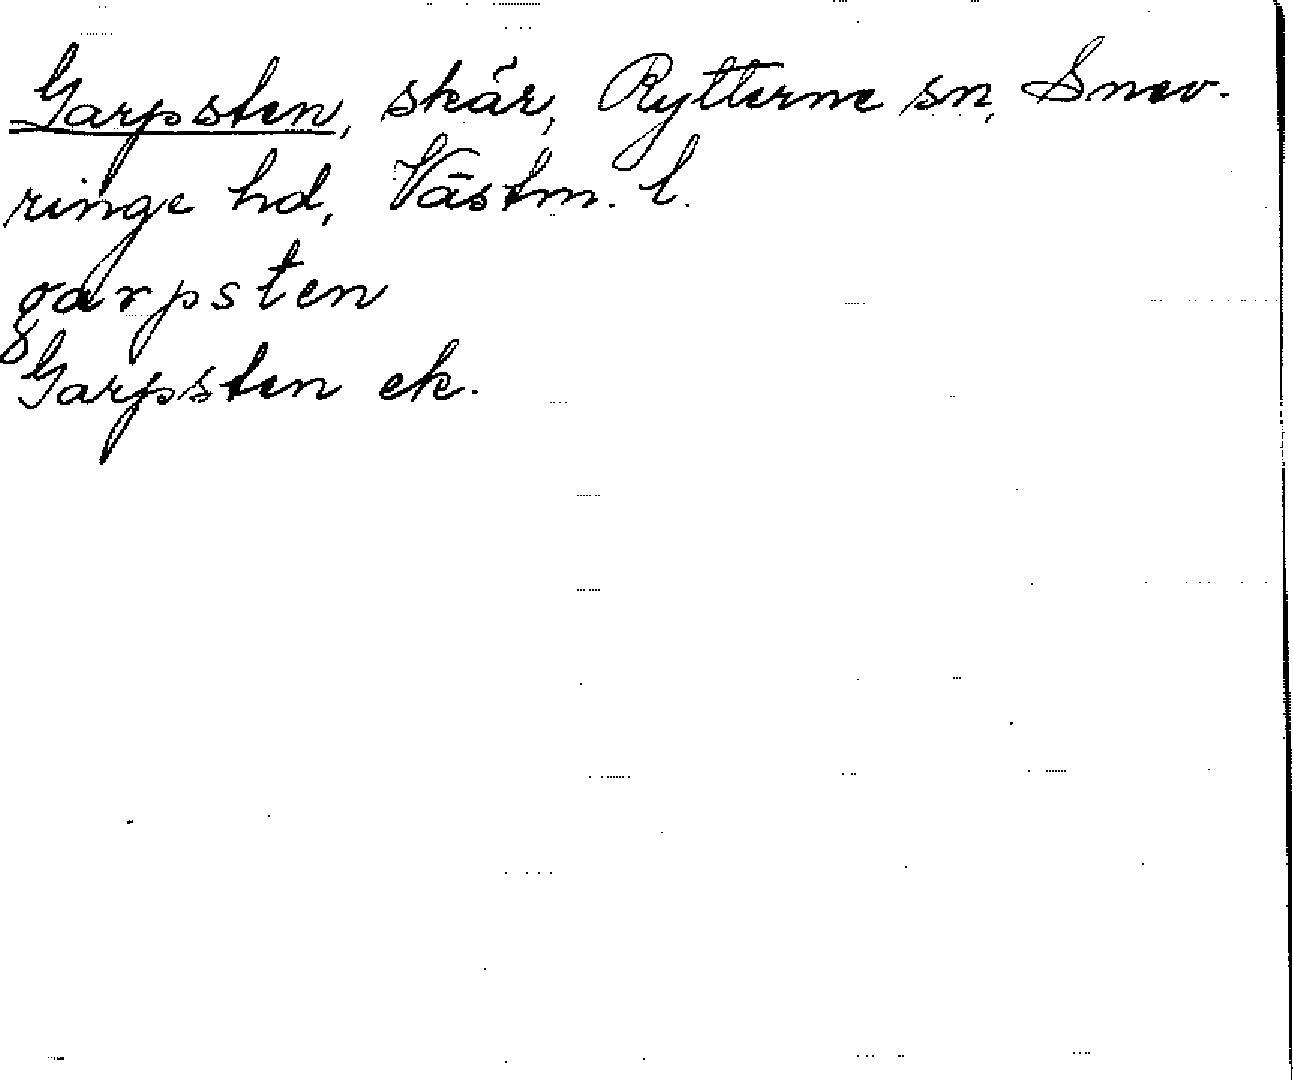 Garpsten, skär, Rytterne sn, Snev-
ringe hd, Västm. l.
garpsten
Garpsten ek.